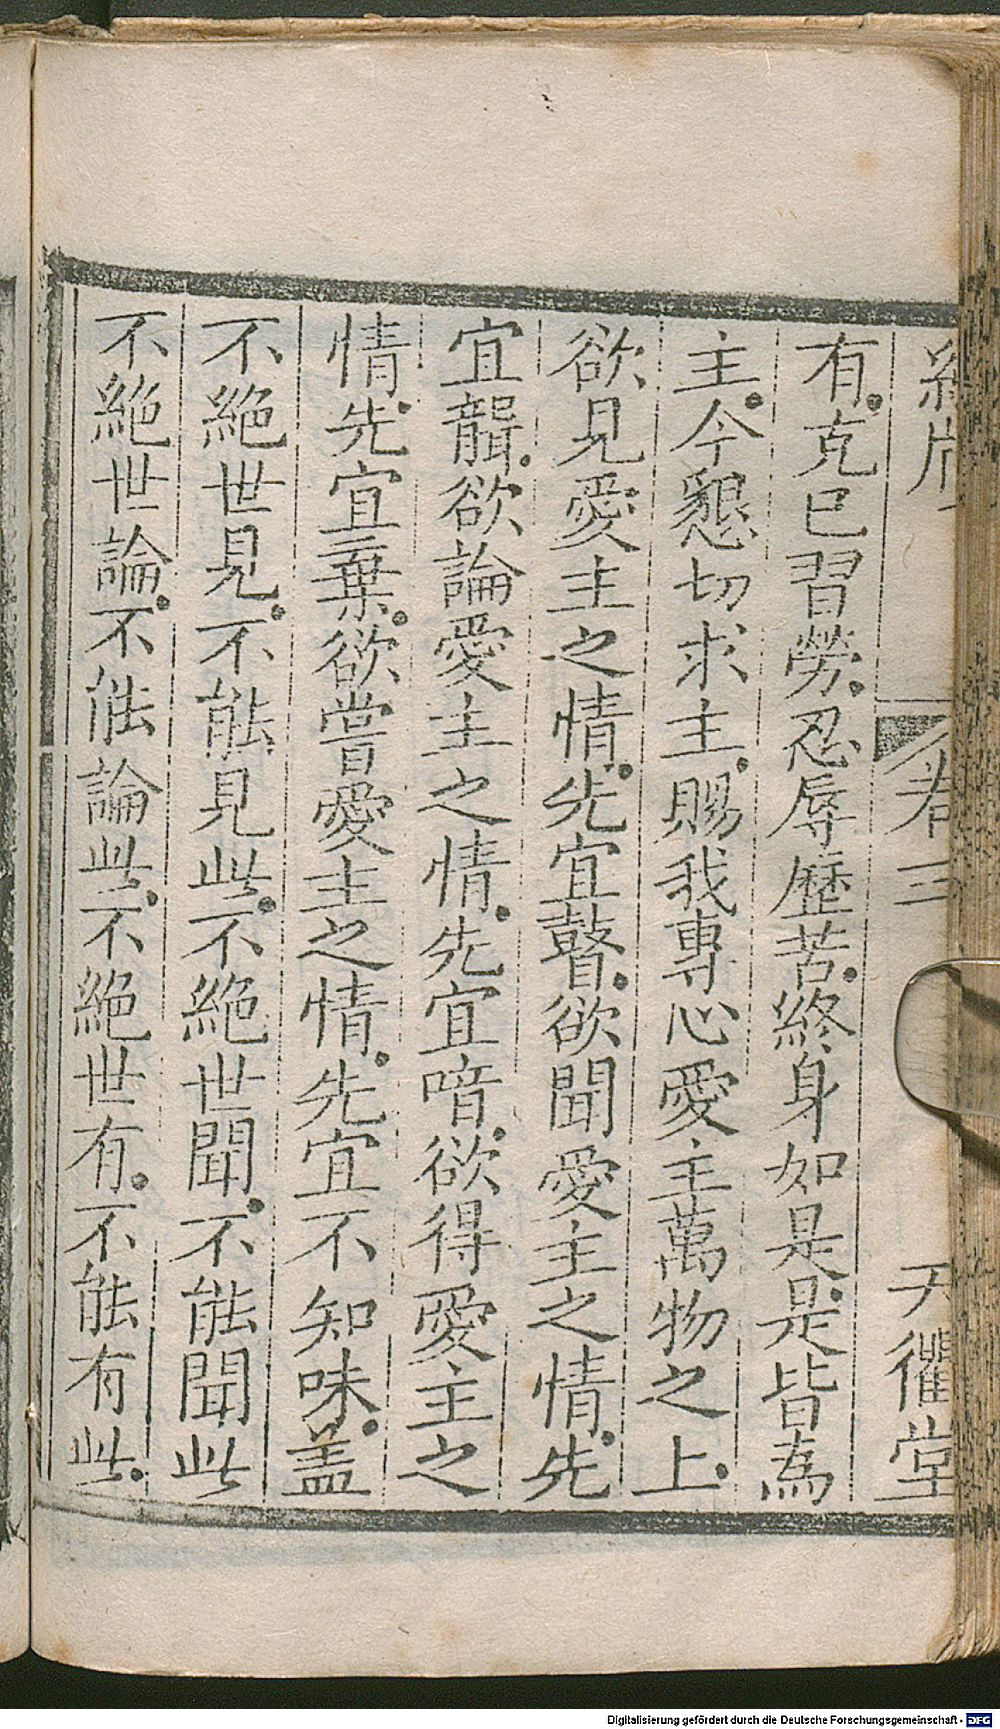 卷三 天衢堂
有。克已習勞。忍辱歷苦。終身如是。是皆為
主。今懇切求主。賜我專心愛主萬物之上。
欲見愛主之情。先宜瞽。欲聞愛主之情。先
宜聾。欲論愛主之情。先宜喑。欲得愛主之
情。先宜棄。欲嘗愛主之情。先宜不知味。盖
不絕世見。不能見此。不絕世聞。不能聞此
不絕世論。不能論此。不絕世有。不能有此。
Digitalisierung gefördert durch die Deutsche Forschungsgemeinschaft - DFG